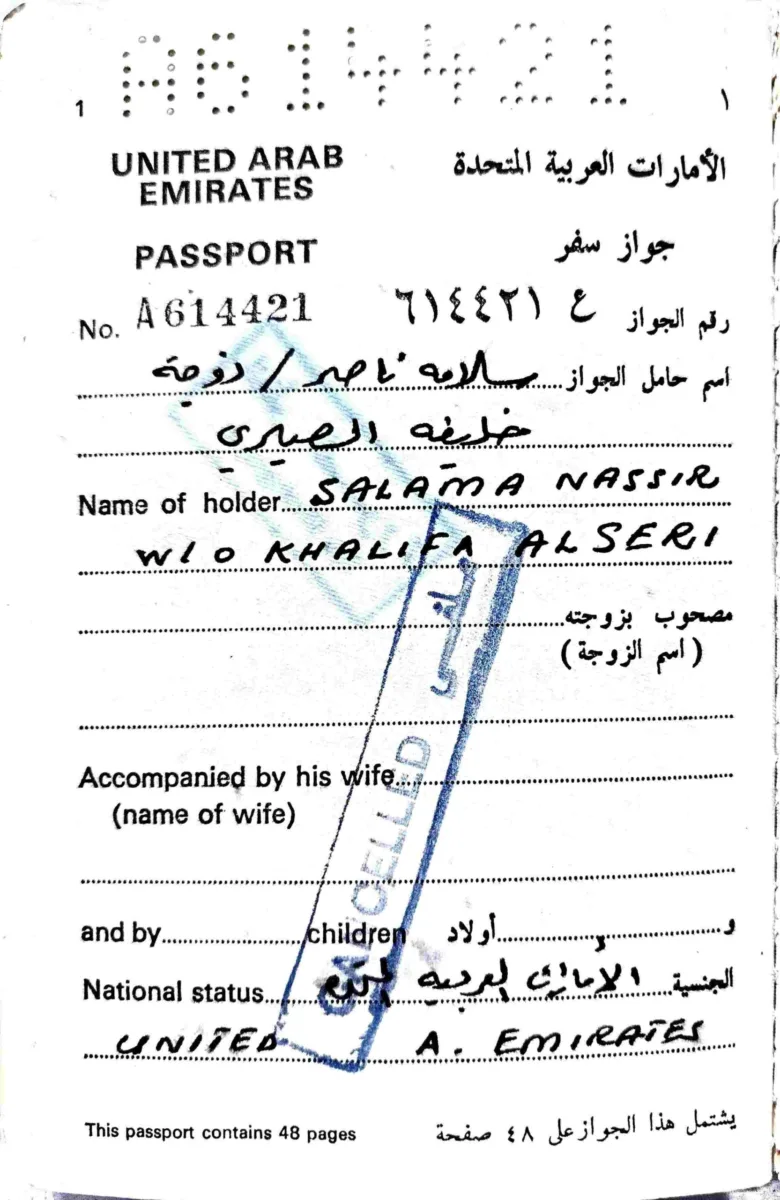 A614421
1 ١
UNITED ARAB الأمارات العربية المتحدة
EMIRATES
PASSPORT جواز سفر
No. A614421 رقم الجواز ع ٦١٤٤٢١
اسم حامل الجواز سلامه ناصر / زوجة
خليفه الصيري
Name of holder SALAMA NASSIR
W/O KHALIFA ALSERI
مصحوب بزوجته
(اسم الزوجة)
Accompanied by his wife
(name of wife)
and by children و أولاد
National status الجنسية الامارات العربيه المتحده
UNITED A. EMIRATES
CANCELLED ملغى
This passport contains 48 pages يشتمل هذا الجواز على ٤٨ صفحة